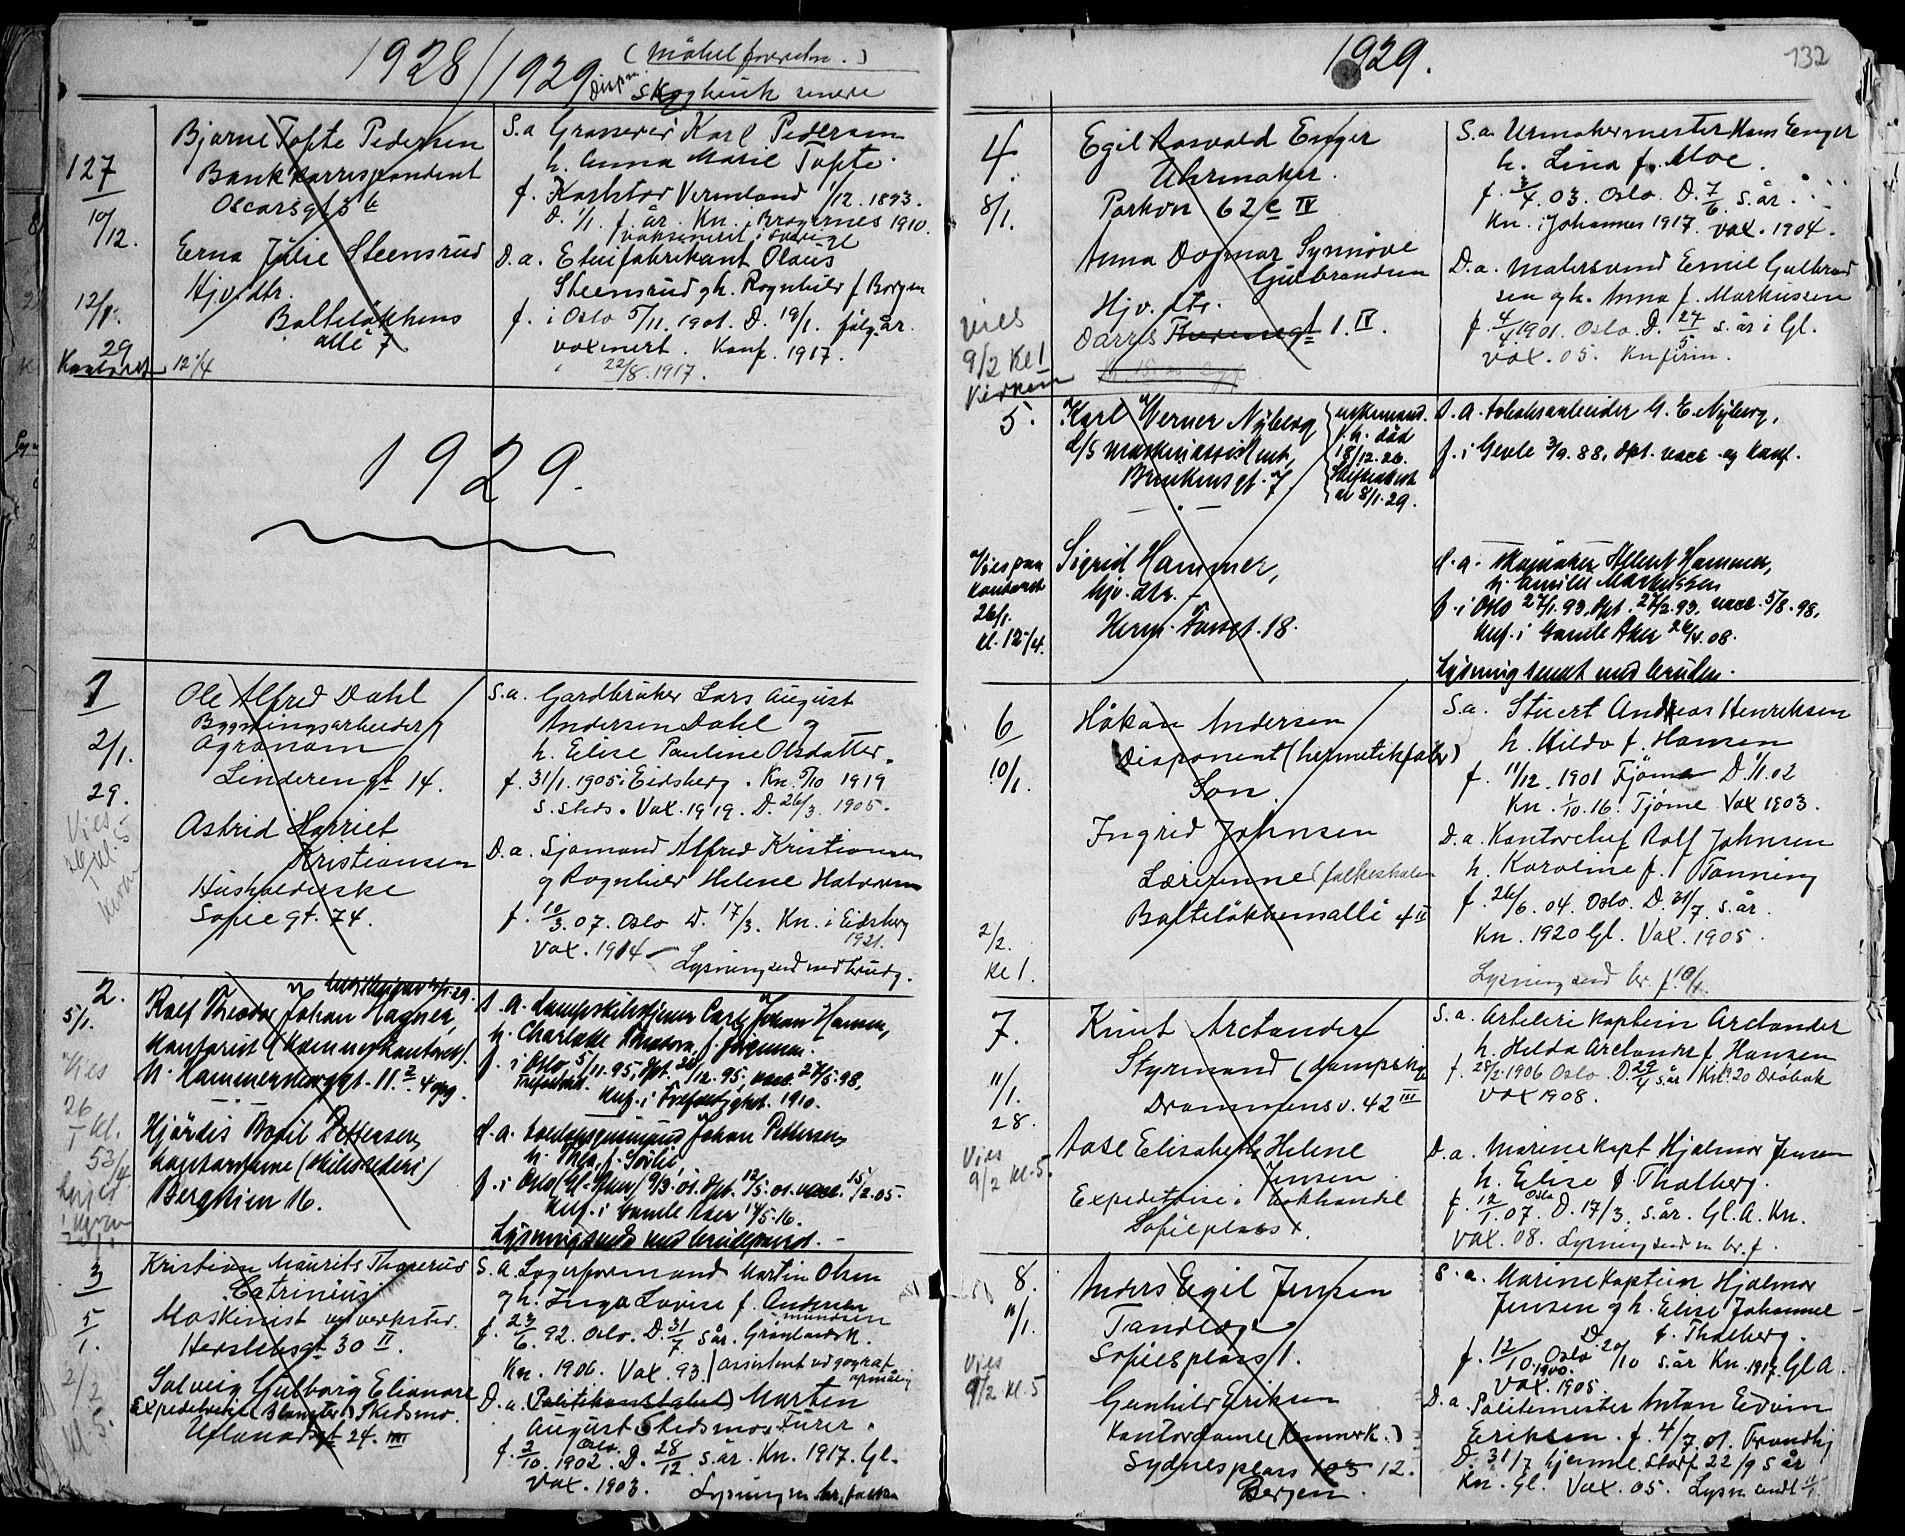 1928/1929
(Möbelforretn.)
127
10/12.
12/12.
29
Kontoret 12 1/4
Bjarne Tofte Pedersen
Bankkorrespondent
Oscarsgt 3 b
Erna Julie Steensrud
Hjv. dtr.
Balteløkkens
allé 7
S.a Grosserer Karl Pedersen
h. Anna Marie Tofte.
f. Karlstad Vermland 1/12. 1893.
D. 1/1. f. år. Kn. i Bragernes 1910.
vaksinert i
D.a. Etuifabrikant Olaus
Steensrud og h. Ragnhild f Borgen
f. i Oslo 5/11. 1901. D. 19/1. følg. år.
vaxinert. Konf. 1917.
22/8. 1917.
1929.
1
2/1.
29.
Vies
26/1 kl. 5
Ole Alfred Dahl
Bygningsarbeider
Agronom
Linderengt 14.
Astrid Harriet
Kristiansen
Husholderske
Sofie gt. 74.
S.a. Gardbruker Lars August
Andersen Dahl og
h. Elise Pauline Olsdatter.
f 31/1. 1905 i Eidsberg. Kn. 5/10 1919
s. steds. Vax. 1919. D. 26/3 1905.
D.a. Sjømand Alfred Kristiansen
og Ragnhild Helene Halvorsen
f. 10/3. 07. Oslo D. 17/3. Kn. i Eidsberg
1921.
Vax. 1914 - Lysning send med brudg.
2.
5/1.
Vies
26/1 kl.
5 3/4
Rolf Theodor Johan Hagner,
Kontorist (Kæmnerkontoret).
h. Hammersborggt. 11. 2. 4 opg.
Hjørdis Bodil Pettersen,
Kontordame
Bergstien 16.
S.a. Dampskibstjener Carl Johan Hansen,
h. Charlotte Theodora f. Jørgensen.
f. i Oslo 5/11. 95, dpt. 26/12. 95, vacc. 27/5. 98,
Trefoldigh.
Knf. i Trefoldighet. 1910.
D.a. Johan Pettersen,
h. Thea, f. Sørlie,
f. i Oslo (Gl. Aker) 9/3. 01. dpt. 12/5. 01. vacc. 15/2. 05.
Knf. i Gamle Aker 14/5. 16.
Lysningseddel med brudgommen. -
3
5/1.
2/2
kl. 5.
Kristian Maurits Thorerus
Catrinius
Maskinist ved verksted.
Herslebsgt 30 II.
Solveig Gulborg Elianore
Expeditrise (Blomster) Skedsmo.
Uflandsgt 24. III
S.a. Lagerformand Martin Olsen
og h. Inga Lovise f. Andersen
f. 23/6. 92. Oslo. D. 31/7 s år. Grønlandsk.
Kn. 1906. Vax. 93.) assistent ved geograf.
opmåling
D.a. (Politikonstabel) Martin
August Skedsmo Furer.
f. 2/10. 1902. Oslo D. 28/12 s. år. Kn. 1917. Gl.
Vax. 1903. Lysning m br. foræ
1929.
132
4.
8/1.
Vies
9/2 Kl 1
Kirken
Egil Rosvald Enger
Uhrmaker.
Parkvn 62 e IV
Anna Dagmar Synnøve
Gulbrandsen
Hjv. dtr.
Darres Thoresensgt 1. IV.
S.a. Urmakermester Hans Enger
h. Lina f. Moe.
f. 3/4 03. Oslo. D. 7/6 s. år.
Kn. i Johannes 1917. Vax. 1904.
D.a. Malersvend Emil Gulbrand
sen og h. Anna f. Markussen
f 4/4 1901. Oslo. D. 27/5 s. år i Gl.
Vax. 05. Knfirm.
5.
Vies paa
kontoret
26/1.
kl. 12 1/4.
Karl Werner Nyberg
D/S maskinassistent,
Brinkensgt. 7
enkemand.
f. h. død
18/12. 26.
Skifteattest
av 8/1. 29.
Sigrid Hammer,
hjv. dtr. -
Herm. Fossgt. 18.
S.a. Tobaksarbeider G. E. Nyberg,
f. i Gevle 3/9. 88. dpt. vacc. og konf.
D.a. Skomaker Albert Hammer,
h. Amalie Markussen
f. i Oslo 27/1. 93, dpt. 27/2. 93, vacc. 5/8. 98,
Knf. i Gamle Aker 26/4. 08.
Lysning sendt med bruden.
6
10/1.
2/2.
Kl 1.
Håkon Andersen
Disponent (hermetikfabr)
Son.
Ingrid Johnsen
Lærerinne (folkeskolen
Balteløkkensallé 4 II
S.a. Stuert Andreas Henriksen
h. Hilda f. Hansen
f. 11/12. 1901 Tjøme D. 1/1. 02
Kn. 1/10. 16. Tjøme Vax 1903.
D.a. Kontorchef Rolf Johnsen
h. Karoline f. Tanning
f. 26/6. 04. Oslo. D. 31/7 s. år.
Kn. 1920 Gl. Vax. 1905.
Lysning send br. f. 10/1.
7.
11/1.
28.
Vies
9/2 Kl. 5.
Knut Arctander
Styrmand (dampskib
Drammensv. 42 III
Aase Elisabeth Helene
Jensen
Expeditrise i bokhandel
Sofiesplass 1.
S.a. Artilleri kaptein Arctander
h. Helda Arctander f. Hansen
f. 28/2. 1906 Oslo. D. 29/4 s år Kn. 20 Drøbak
Vax 1908.
D.a. Marinekapt Hjalmar Jensen
h. Elise f. Thalberg.
f. 12/1. 07. Oslo D. 17/3. s. år. Gl. A. Kn.
Vax. 08. Lysning send m br. f.
8.
11/1.
Vies
9/2 kl. 5
Anders Egil Jensen
Tandlæge
Sofiesplass 1.
Gunhild Eriksen
Kontordame (Kemnerk.)
Sydnesplass 12.
Bergen.
S.a. Marinekaptein Hjalmar
Jensen og h. Elise Johanne
f. Thalberg.
f. 12/10. 1900. Oslo D. 20/10 s. år Kn. 1917. Gl A.
Vax. 1905.
D.a. Politimester Anton Edvin
Eriksen. f. 4/7. 01. Trondhj
D. 31/7 hjemme. Stadf 22/9 s år
Kn. Gl. Vax. 05. Lysn sendt 11/1